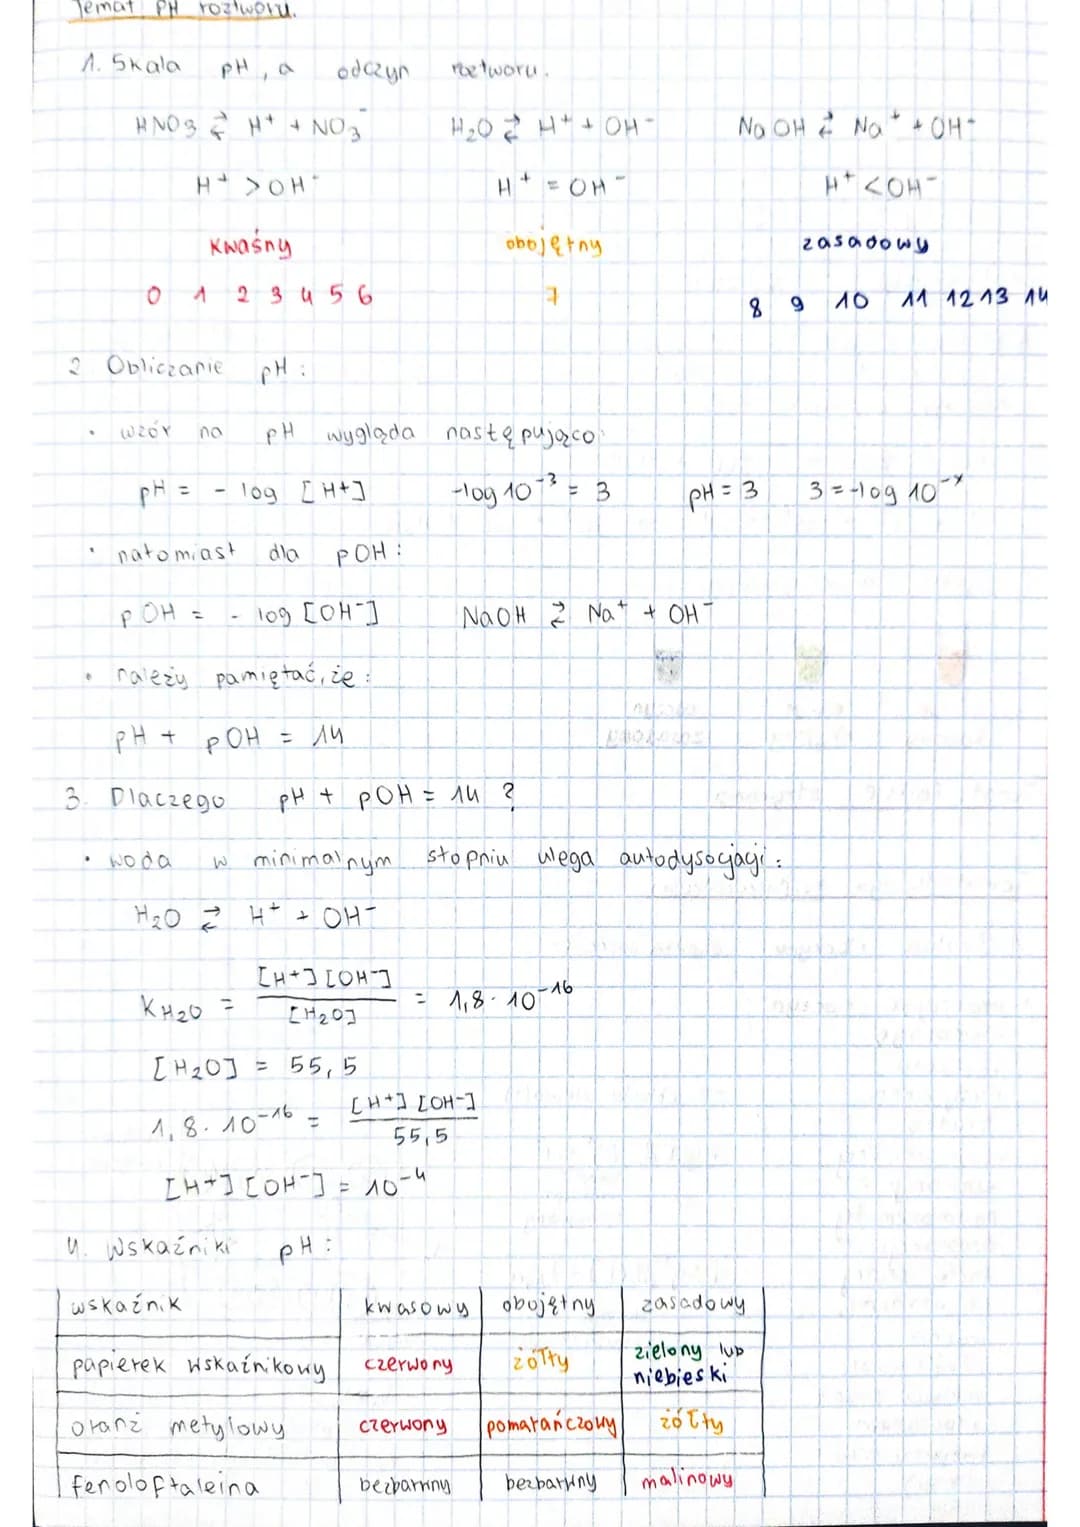 Temat PH roztworu.
1. Skala pH, a odczyn roztworu.
HNO3 ⇄ H+ + NO3- H2O ⇄ H+ + OH- NaOH ⇄ Na+ + OH-
H+ > OH- H+ = OH- H+ < OH-
kwaśny obojętny zasadowy
0 1 2 3 4 5 6 7 8 9 10 11 12 13 14
2 Obliczanie pH:
• wzór na pH wygląda następująco:
pH = - log [H+] -log 10^-3 = 3 pH = 3 3 = -log 10^-x
• natomiast dla pOH:
pOH = - log [OH-] NaOH ⇄ Na+ + OH-
• należy pamiętać, że:
pH + pOH = 14
3. Dlaczego pH + pOH = 14 ?
• woda w minimalnym stopniu ulega autodysocjacji:
H2O ⇄ H+ + OH-
KH2O = [H+][OH-] / [H2O] = 1,8 · 10^-16
[H2O] = 55,5
1,8 · 10^-16 = [H+][OH-] / 55,5
[H+][OH-] = 10^-4
4. Wskaźniki pH:
wskaźnik kwasowy obojętny zasadowy
papierek wskaźnikowy czerwony żółty zielony lub niebieski
oranż metylowy czerwony pomarańczowy żółty
fenoloftaleina bezbarwny bezbarwny malinowy